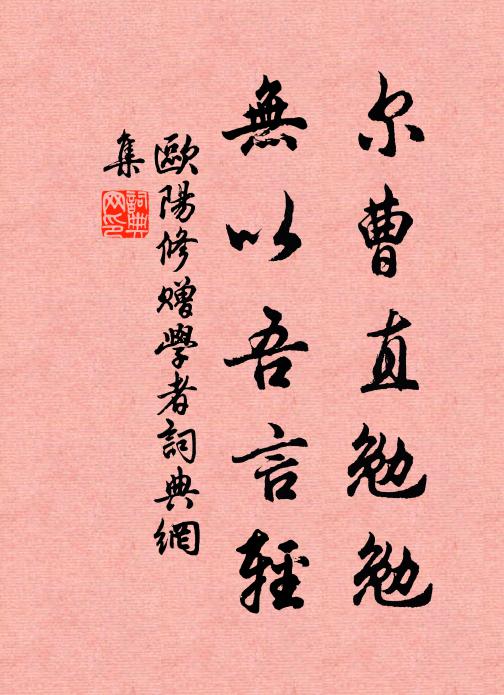 尔曹直勉勉
無以吾言輕
歐陽修贈學者詞典網
集
詞典网印